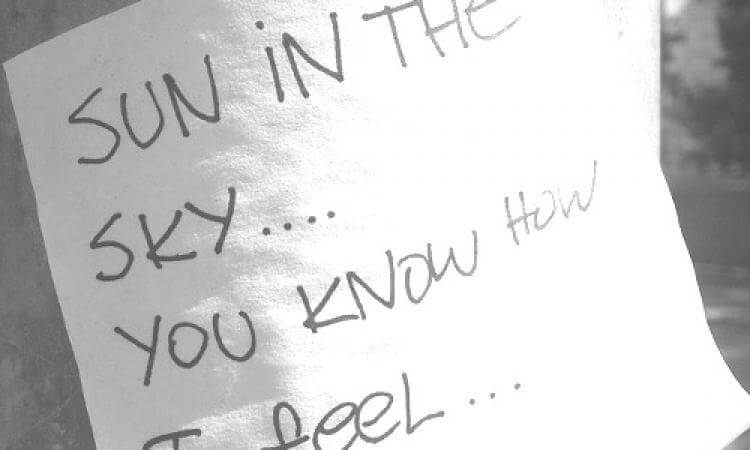 SUN iN THE
SKY....
YOU KNOW HOW
I feel...